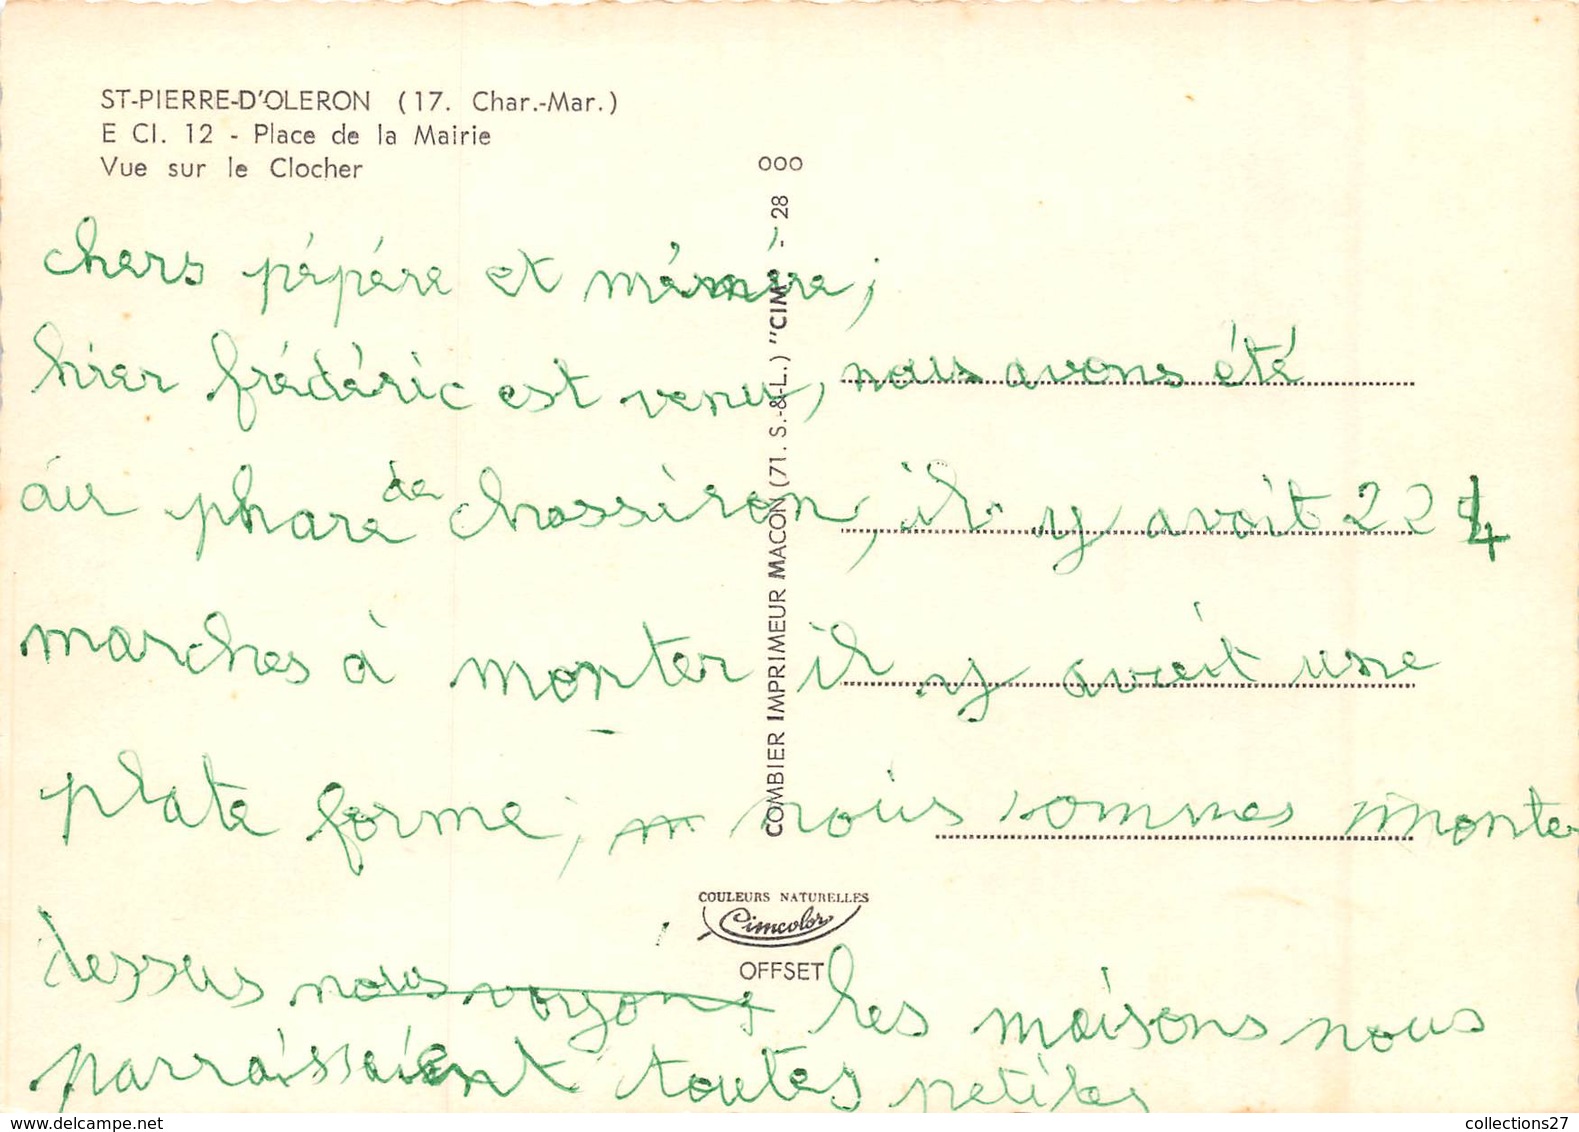 ST-PIERRE-D'OLERON (17. Char.-Mar.)
E Cl. 12 - Place de la Mairie
Vue sur le Clocher
000
COMBIER IMPRIMEUR MACON (71. S.-&-L.) "CIM" - 28
chers pépére et mémére,
hier frédéric est venu, nous avons été
au phare de chassiron, il y avait 224
marches à monter il y avait une
plate forme, nous sommes monte
dessus nous voyons les maisons nous
parraissaient toutes petites
COULEURS NATURELLES
Cimcolor
OFFSET
collections27